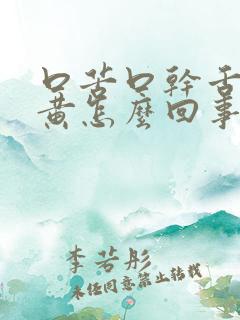 口苦口幹舌
黃怎麼回事
李若彤
未经同意禁止转载